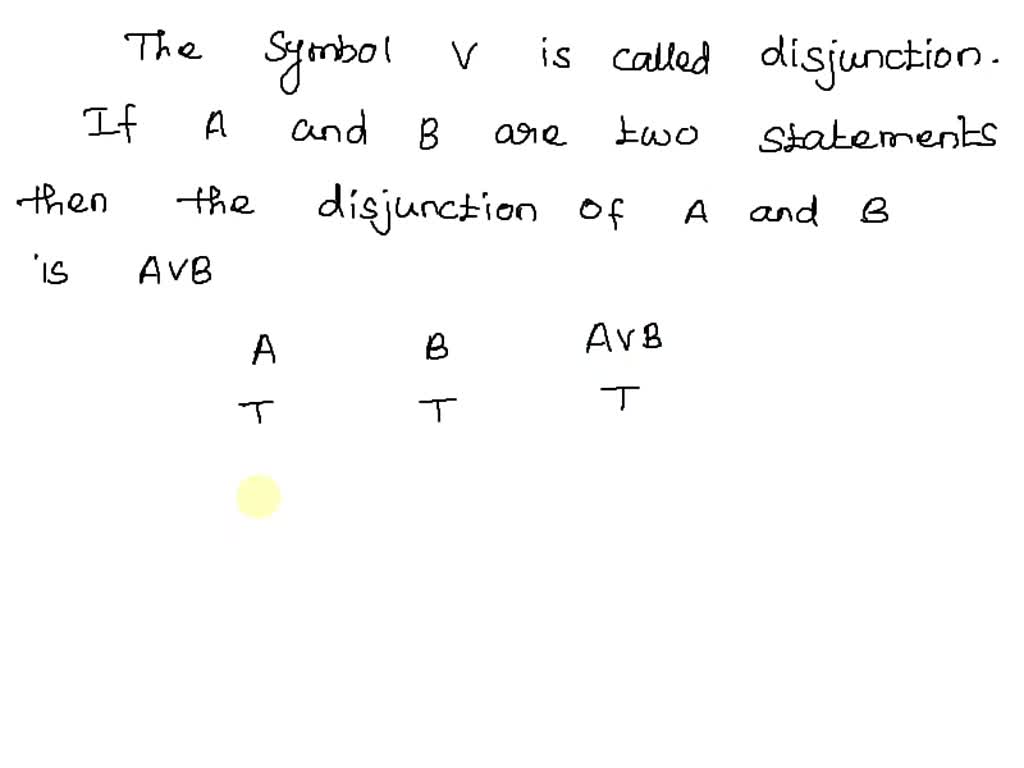 The Symbol V is called disjunction.
If A and B are two statements
then the disjunction of A and B
is AVB
A B AVB
T T T